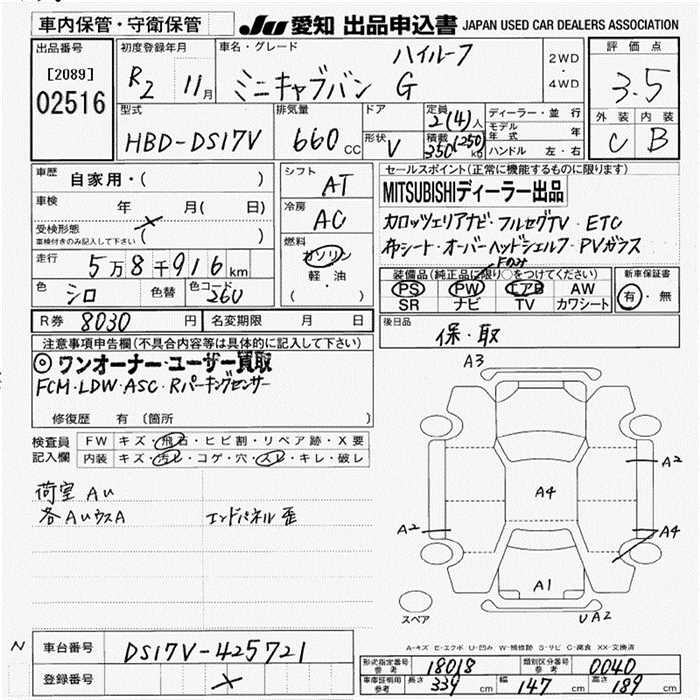 車内保管・守衛保管 JU 愛知 出品申込書 JAPAN USED CAR DEALERS ASSOCIATION
出品番号 初度登録年月 車名・グレード ハイルーフ 2WD・4WD 評価点
[2089] R2 11月 ミニキャブバン G 3.5
02516
型式 排気量 ドア 定員 2(4)人 ディーラー・並行 外装 内装
HBD-DS17V 660cc 形状 V 積載 350(250)kg モデル年式 年 C B
ハンドル 左・右
車歴 自家用・( ) シフト AT セールスポイント(正常に機能するものに限ります)
車検 年 月( 日) 冷房 AC MITSUBISHIディーラー出品
受検形態 ( ) カロッツェリアナビ・フルセグTV・ETC
車検付きのみ記入して下さい
布シート・オーバーヘッドシェルフ・PVガラス
走行 5万8千916km 燃料 ガソリン 軽・油 ( )
Fのみ
装備品(純正品に限り○をつけてください) 新車保証書
色 シロ 色替 色コード 26U PS PW エアB AW 有・無
SR ナビ TV カワシート
R券 8030円 名変期限 月 日 後日品 保・取
注意事項申告欄(不具合内容等は具体的に記入して下さい)
◎ワンオーナー・ユーザー買取
FCM・LDW・ASC・Rパーキングセンサー
修復歴 有(箇所 )
検査員記入欄 FW キズ・飛石・ヒビ割・リペア跡・X要
内装 キズ・汚レ・コゲ・穴・スレ・キレ・破レ
荷室 AU
各AUウスA エンドパネル 歪
A3
A2
A4
A2
A4
A1
スペア UA2
A-キズ E-エクボ U-凹み W-補修跡 S-サビ C-腐食 XX-交換済
N 車台番号 DS17V-425721
登録番号 ×
形式指定番号 参考 18018 類別区分番号 参考 0040
車庫証明用 参考 長さ 339cm 幅 147cm 高さ 189cm